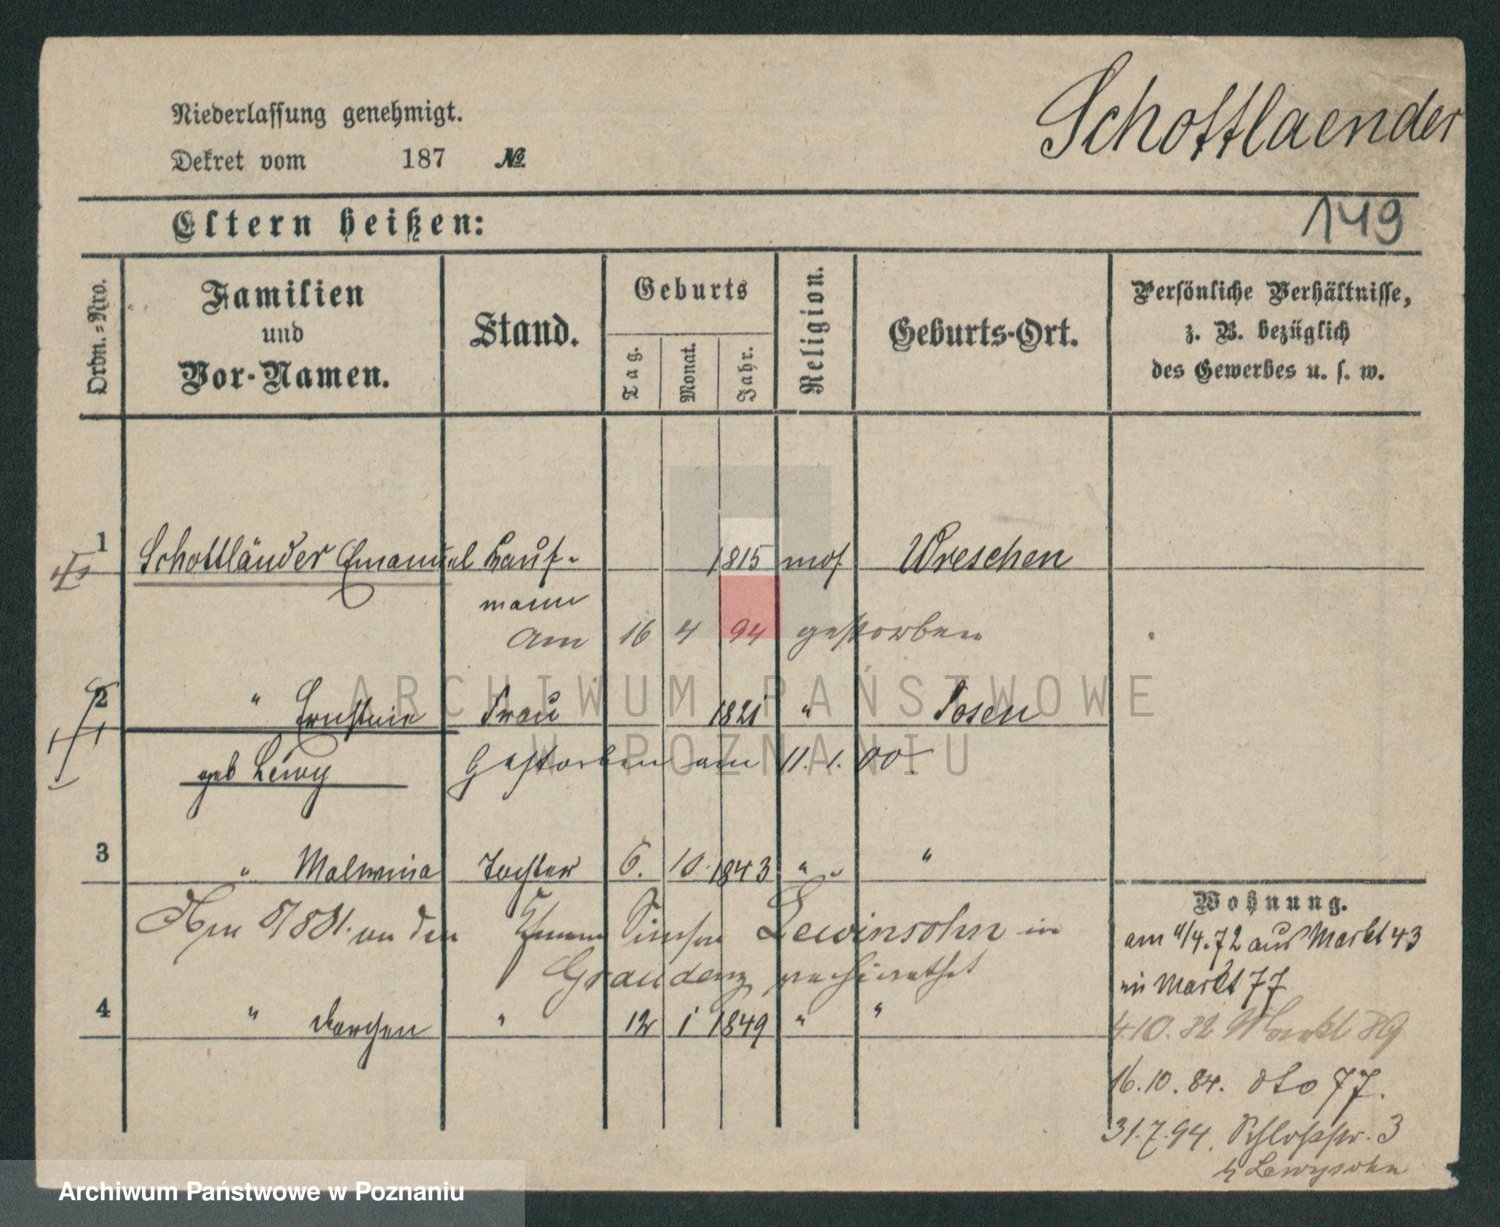 Schottlaender
Niederlassung genehmigt.
Dekret vom 187 №
149
Eltern heißen:
Ordn.-Nro.
Familien
und
Vor-Namen.
Stand.
Geburts
Tag.
Monat.
Jahr.
Religion.
Geburts-Ort.
Persönliche Verhältnisse,
z. B. bezüglich
des Gewerbes u. s. w.
1 Schottländer Emanuel Kauf- 1815 mos. Wreschen
mann
am 16 4 94 gestorben
2 " Ernstine Frau 1821 " Posen
geb Lewy Gestorben am 11. 1. 00.
3 " Malwina Tochter 6. 10. 1843 " "
Am an den Simson Lewinsohn in
Graudenz verheirathet
4 " Dorchen " 12 1 1849 " "
Wohnung.
am 11/4.72 aus Markt 43
in Markt 77
4.10.82 Markt 89
16.10.84. dto 77.
31.7.94. Schloßstr. 3
b/ Lewysohn
ARCHIWUM PAŃSTWOWE
W POZNANIU
Archiwum Państwowe w Poznaniu